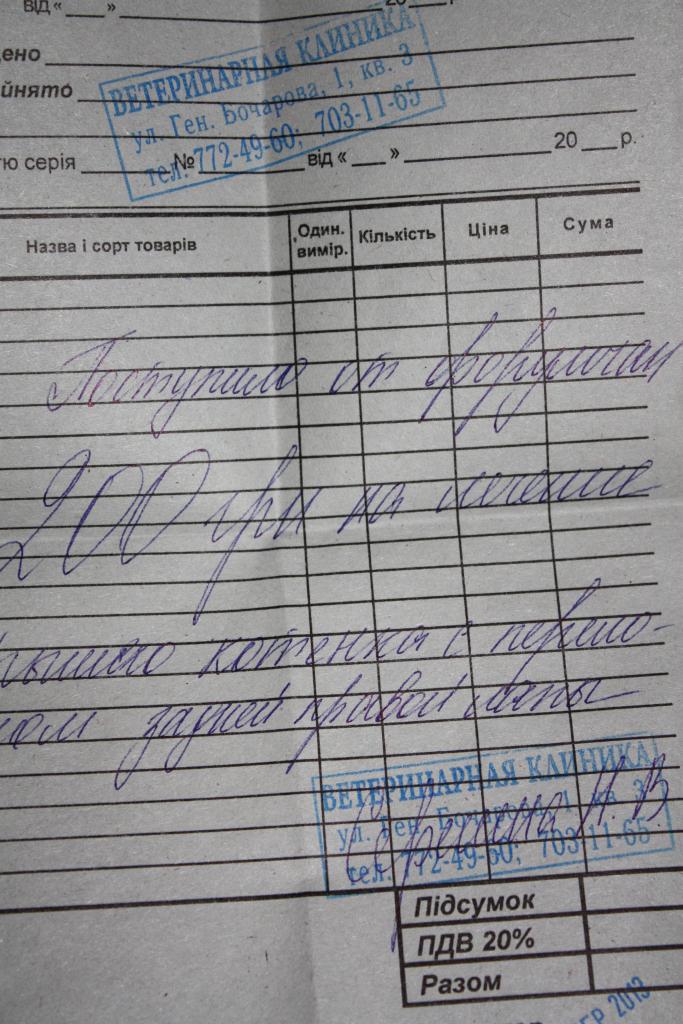 від « ___ » ___ 20 ___ р
ено
йнято
ВЕТЕРИНАРНАЯ КЛИНИКА
ул. Ген. Бочарова, 1, кв. 3
тел. 772-49-60; 703-11-65
ю серія ___ № ___ від « ___ » ___ 20 ___ р.
Назва і сорт товарів Один. вимір. Кількість Ціна Сума
Поступило от форумчан
200 грн на лечение
рыжего котенка с перело-
мом задней правой лапы
ВЕТЕРИНАРНАЯ КЛИНИКА
ул. Ген. Бочарова, 1, кв. 3
тел. 772-49-60; 703-11-65
Підсумок
ПДВ 20%
Разом
2013